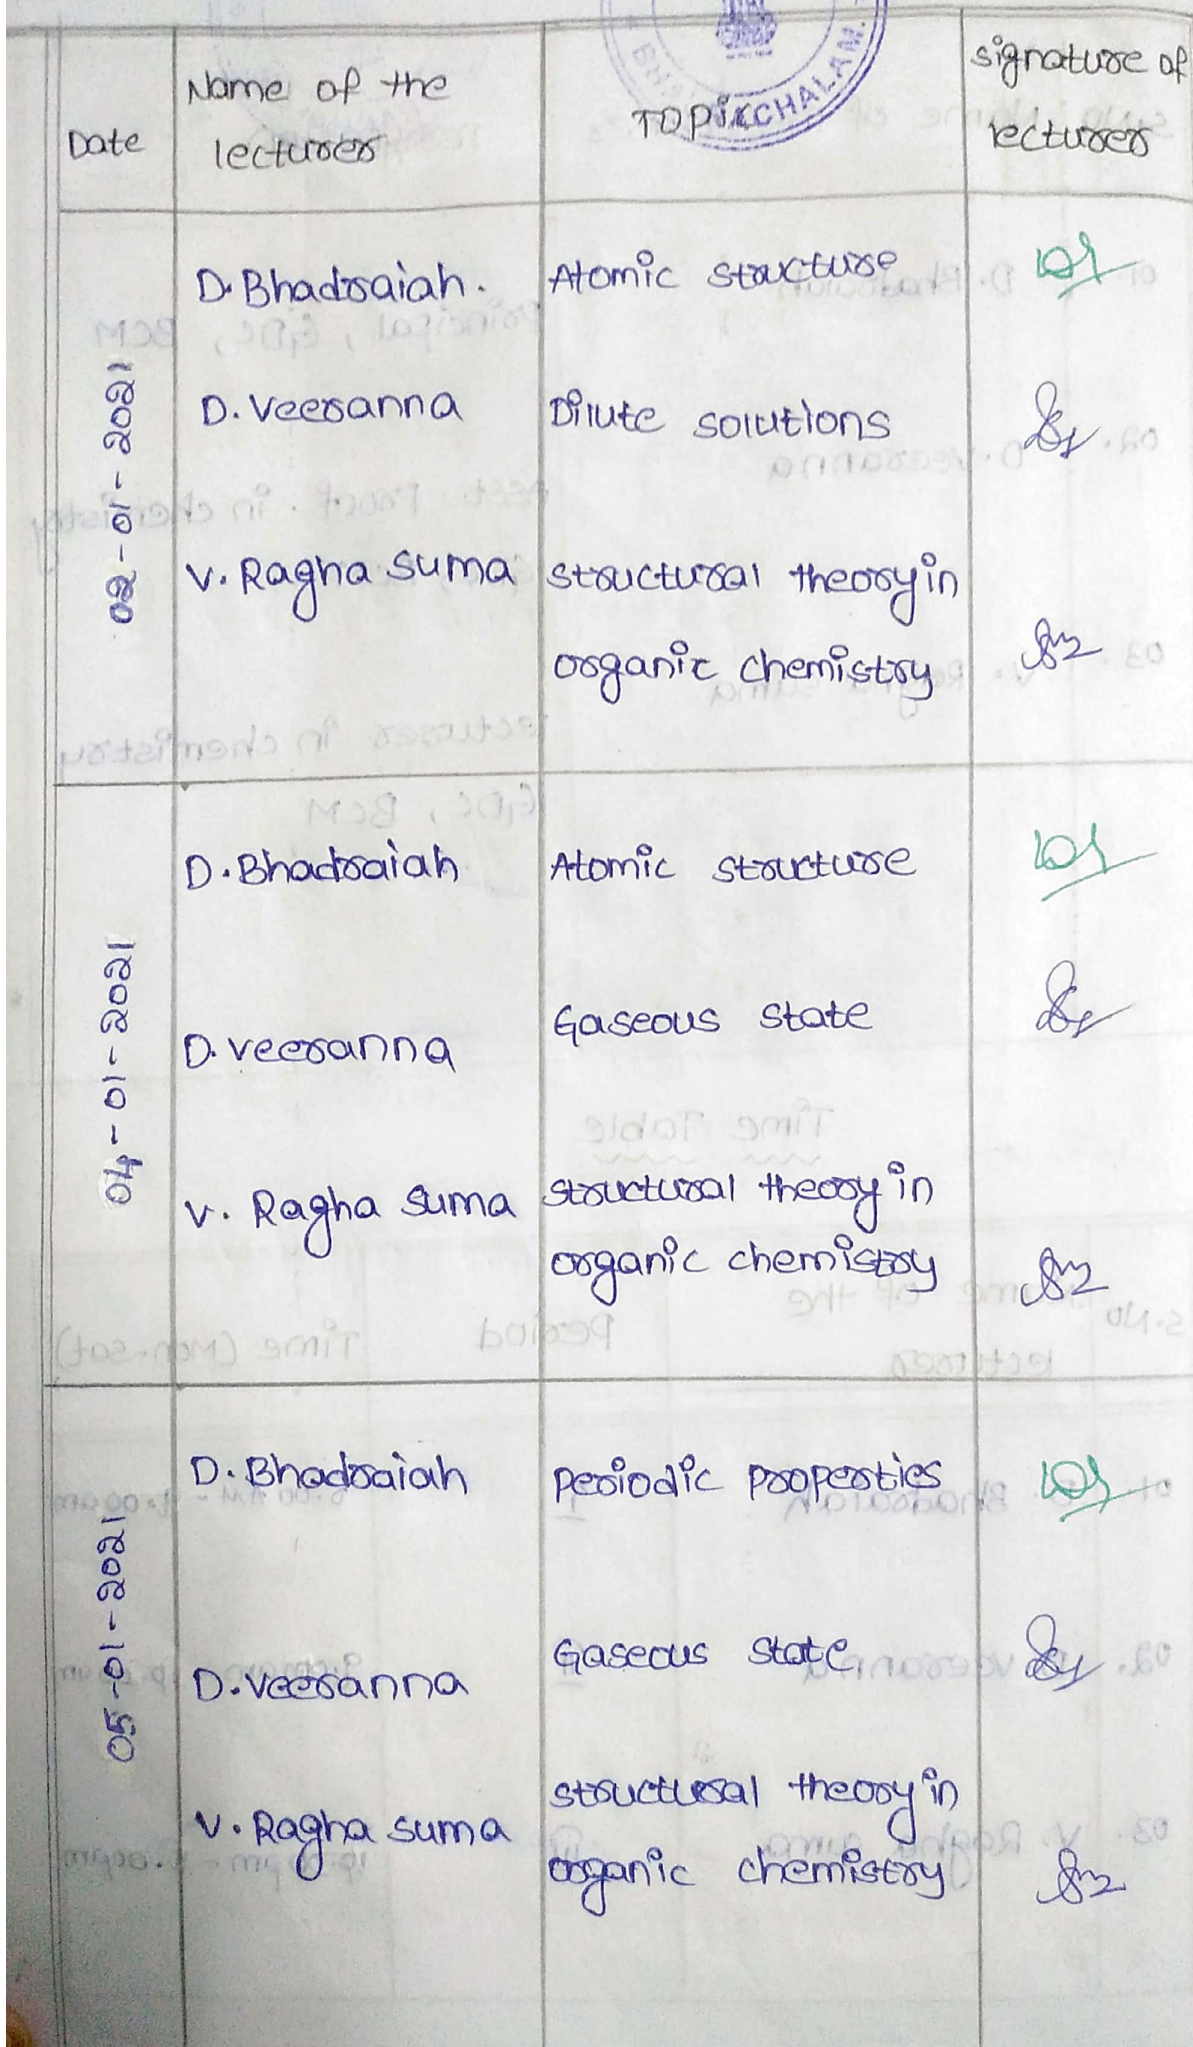 Date
Name of the
lecturer
TOPIC
signature of
lecturer
CHALAM.
02-01-2021
D. Bhadraiah.
Atomic structure
D. Veeranna
Dilute solutions
V. Ragha suma
structural theory in
organic chemistry
04-01-2021
D. Bhadraiah
Atomic structure
D. veeranna
Gaseous state
V. Ragha suma
structural theory in
organic chemistry
05-01-2021
D. Bhadraiah
Periodic properties
D. Veeranna
Gaseous state
V. Ragha suma
structural theory in
organic chemistry